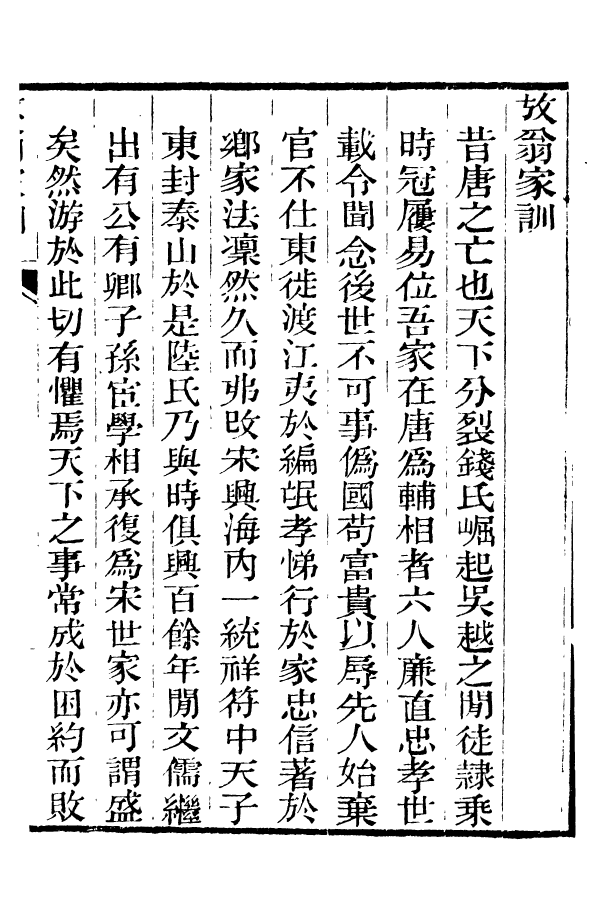 放翁家訓
昔唐之亡也天下分裂錢氏崛起吳越之閒徒隸乘
時冠屨易位吾家在唐爲輔相者六人廉直忠孝世
載令聞念後世不可事僞國苟富貴以辱先人始棄
官不仕東徙渡江夷於編氓孝悌行於家忠信著於
鄉家法凛然久而弗改宋興海內一統祥符中天子
東封泰山於是陸氏乃與時俱興百餘年閒文儒繼
出有公有卿子孫宦學相承復爲宋世家亦可謂盛
矣然游於此切有懼焉天下之事常成於困約而敗